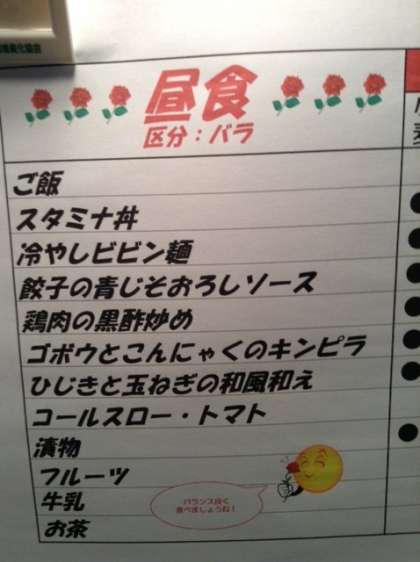 昼食
区分：バラ
ご飯
スタミナ丼
冷やしビビン麺
餃子の青じそおろしソース
鶏肉の黒酢炒め
ゴボウとこんにゃくのキンピラ
ひじきと玉ねぎの和風和え
コールスロー・トマト
漬物
フルーツ
牛乳
お茶
バランス良く
食べましょうね！